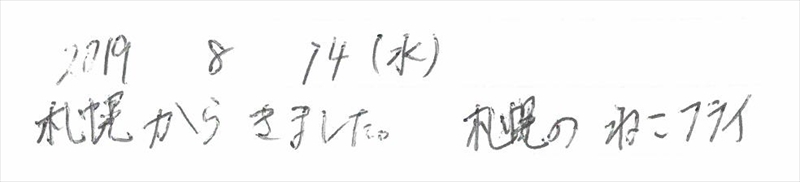 2019 8 14(水)
札幌からきました。 札幌の ねこフライ